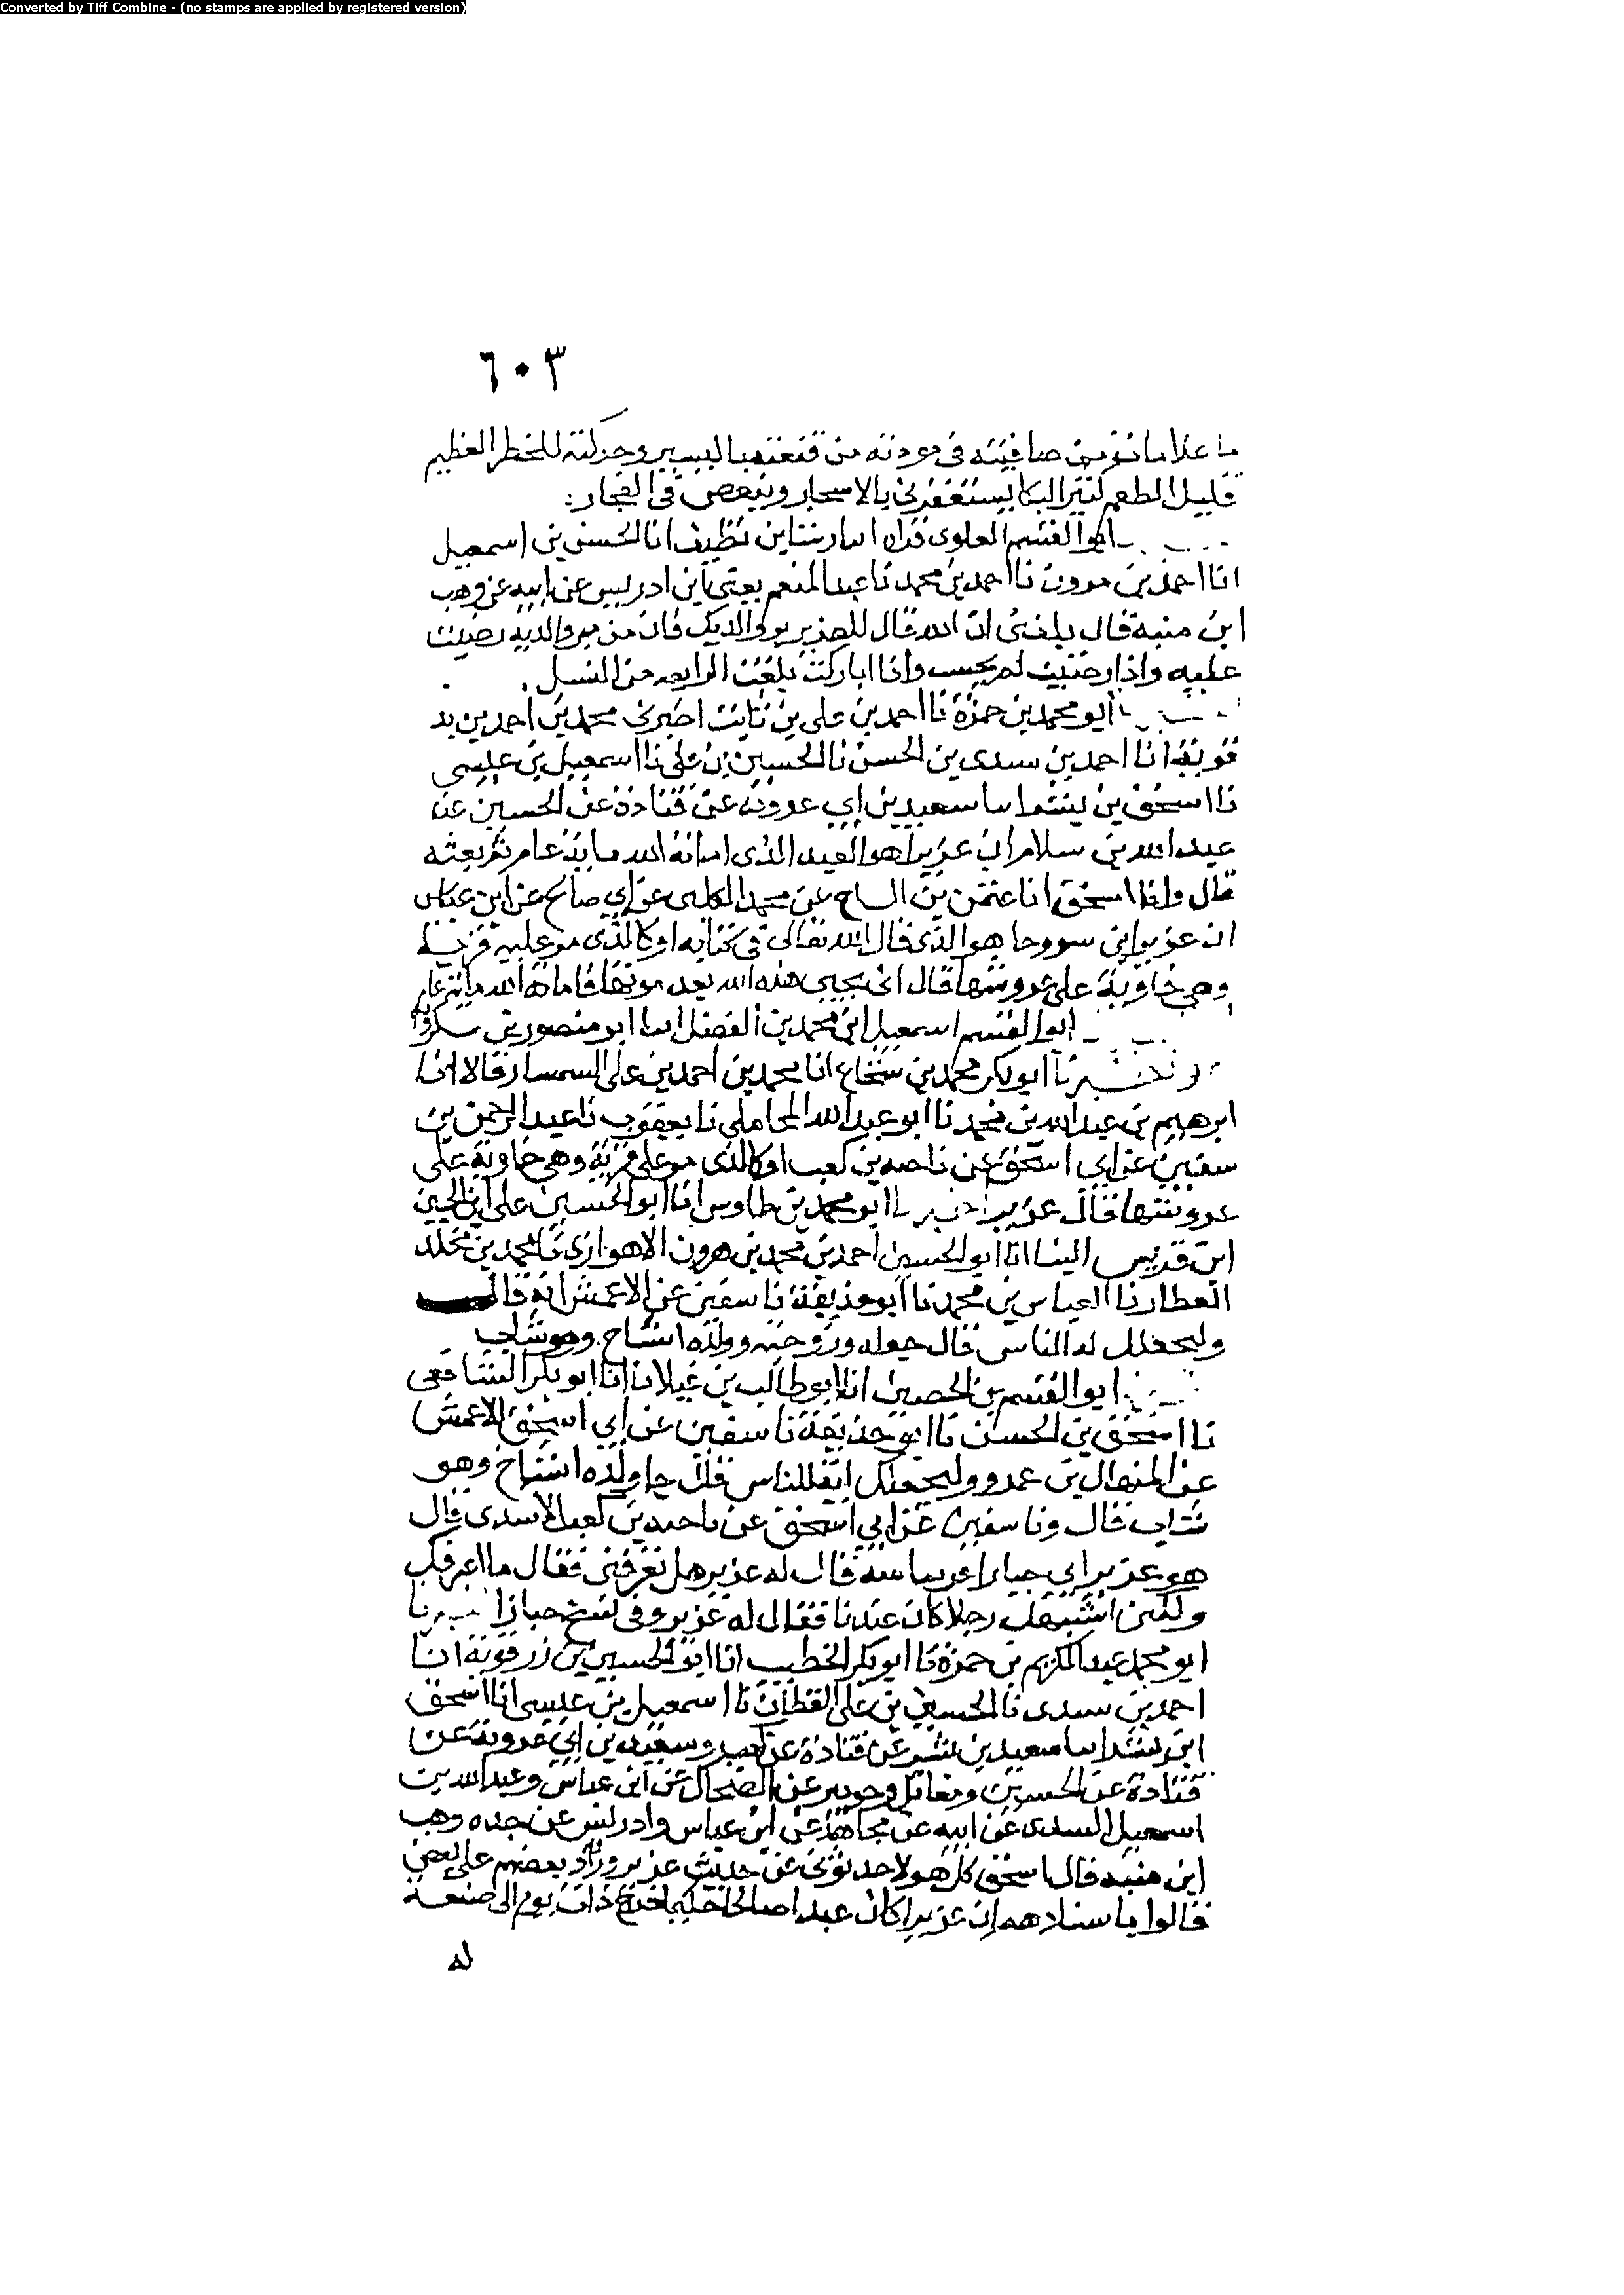 Converted by Tiff Combine - (no stamps are applied by registered version)
٦٠٣
ما علاما من صافيته في مودته من قنعته باليسير وحركته للخطر العظيم
قليل الطعم كثير البكا يستغفرني بالاسحار ويبغض في الفجار :
ابو القسم العلوي انا رشا بن نظيف انا الحسن بن اسمعيل
انا احمد بن مروان نا احمد بن محمد نا عبد المنعم يعني ابن ادريس عن ابيه عن وهب
ابن منبه قال بلغني ان الله قال للعزير بر والديك فان من بر والديه رضيت
عليه واذا رضيت واذا باركت بلغت الرابعه من النسل .
ابو محمد بن حمزة نا احمد بن علي بن ثابت اخبرني محمد بن احمد بن
انا احمد بن سندي بن الحسن نا الحسين بن علي نا اسمعيل بن عيسى
نا اسحق بن بشر انا سعيد بن ابي عروبة عن قتادة عن الحسن عن
عبد الله بن سلام ان عزيرا هو العبد الذي اماته الله ماية عام ثم بعثه
قال وانا اسحق انا عثمن بن الساج عن محمد الكلبي عن ابي صالح عن ابن عباس
ان عزير ابن سروحا هو الذي قال الله تعالى في كتابه او كالذي مر علي قرية
وهي خاوية على عروشها قال انى يحيي هذه الله بعد موتها فاماته الله ماية عام
ابو القسم اسمعيل بن محمد بن الفضل انا ابو منصور بن شكرويه
ابو بكر محمد بن شجاع انا محمد بن احمد بن علي السمسار قالا انا
ابرهيم بن عبد الله بن محمد نا ابو عبد الله المحاملي نا يعقوب نا عبد الرحمن بن
سفين عن ابي اسحق عن ناجيه بن كعب او كالذي مر على قرية وهي خاوية على
عروشها قال عزير ابو محمد بن طاوس انا ابو الحسين علي بن الحسين
ابن قريس البنا انا ابو الحسين احمد بن محمد بن هرون الاهوازي نا محمد بن مخلد
العطار نا العباس بن محمد نا ابو حذيفة نا سفين عن الاعمش انه قال
وليجعلك اية للناس قال وولده اشياخ وهو شاب
ابو القسم بن الحصين انا ابو طالب بن غيلان انا ابو بكر الشافعي
نا اسحق بن الحسن نا ابو حذيفة نا سفين عن ابي اسحق الاعمش
عن المنهال بن عمرو وليجعلك اية للناس قال جا وولده اشياخ وهو
شاب قال ونا سفين عن ابي اسحق عن ناجيه بن كعب الاسدي قال
هو عزير اتى جبارا قال له عزير هل تعرفني فقال ما اعرفك
ولكن اشبهك رجلا كان عندنا فقال له عزير
ابو محمد عبد الكريم بن حمزة نا ابو بكر الخطيب انا ابو الحسين بن زرقوية انا
احمد بن سندي نا الحسين بن علي القطان نا اسمعيل بن عيسى انا اسحق
ابن بشر انا سعيد بن بشير عن قتادة عن كعب وسعيد بن ابي عروبة عن
قتادة عن الحسن ومقاتل وجويبر عن الضحاك عن ابن عباس وعبد الله بن
اسمعيل السدي عن ابيه عن مجاهد عن ابن عباس وادريس عن جده وهب
ابن منبه قال اسحق كل هولا حدثوني عن حديث عزير وزاد بعضهم على بعض
قالوا باسنادهم ان عزيرا كان عبدا صالحا حكيما خرج ذات يوم الى ضيعة
له